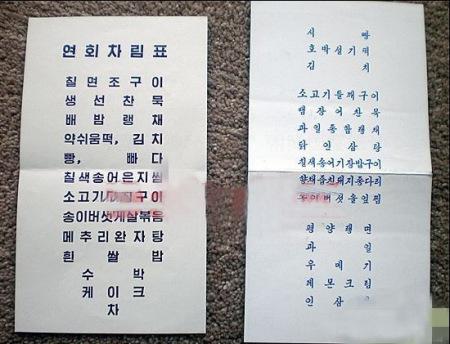 연회차림표
칠면조구이
생선찬묵
배밤랭채
약쉬움떡, 김치
빵, 빠다
칠색송어은지쌈
소고기
송이버섯게살볶음
메추리완자탕
흰쌀밥
수박
케이크
차
시
호박설기떡
김치
소고기들깨구이
뱀장어찬묵
과일종합랭채
닭인삼탕
칠색송어기장밥구이
돼지종다리
버섯
평양랭면
과일
우메기
레몬크림
인삼